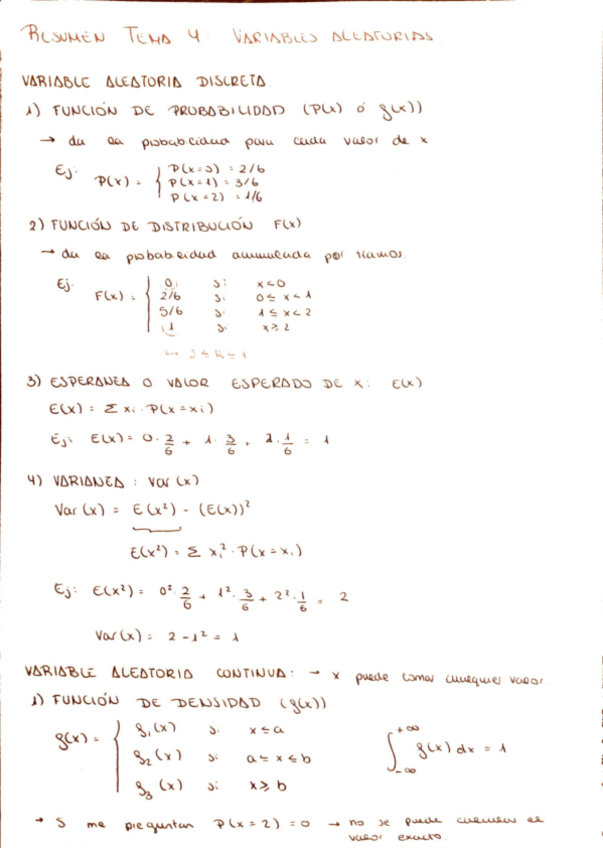 RESUMEN TEMA 4: VARIABLES ALEATORIAS
VARIABLE ALEATORIA DISCRETA
1) FUNCIÓN DE PROBABILIDAD (P(x) ó f(x))
→ da la probabilidad para cada valor de x
Ej: P(x) = { P(x=0) = 2/6
P(x=1) = 3/6
P(x=2) = 1/6
2) FUNCIÓN DE DISTRIBUCIÓN F(x)
→ da la probabilidad acumulada por tramos.
Ej. F(x) = { 0 si x<0
2/6 si 0≤x<1
5/6 si 1≤x<2
1 si x≥2
3) ESPERANZA O VALOR ESPERADO DE x: E(x)
E(x) = Σ xi · P(x=xi)
Ej: E(x) = 0·2/6 + 1·3/6 + 2·1/6 = 1
4) VARIANZA: Var(x)
Var(x) = E(x²) - (E(x))²
E(x²) = Σ xi² · P(x=xi)
Ej: E(x²) = 0²·2/6 + 1²·3/6 + 2²·1/6 = 2
Var(x) = 2-1² = 1
VARIABLE ALEATORIA CONTINUA: → x puede tomar cualquier valor
1) FUNCIÓN DE DENSIDAD (f(x))
f(x) = { f₁(x) si x≤a
f₂(x) si a≤x≤b
f₃(x) si x≥b
∫₋∞^+∞ f(x) dx = 1
→ Si me preguntan P(x=2) = 0 → no se puede el
valor exacto.